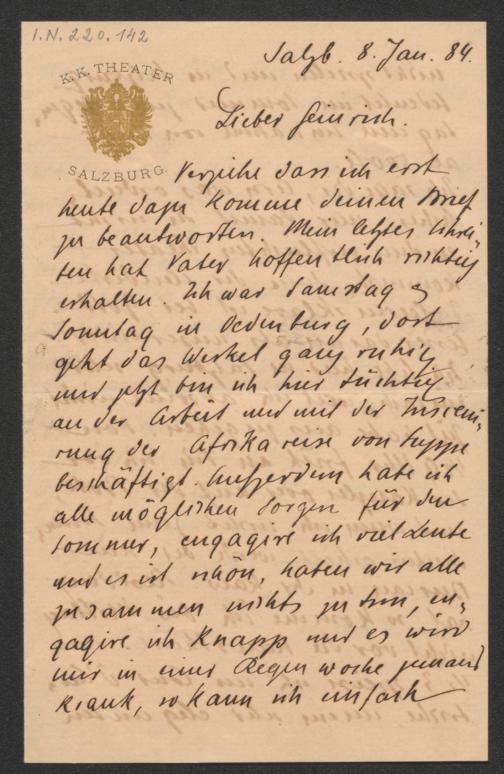 I.N. 220.142
Salzb. 8. Jan. 84.
K.K. THEATER
SALZBURG.
Lieber Heinrich.
Verzeihe dass ich erst
heute dazu komme deinen Brief
zu beantworten. Mein letztes Schrei-
ben hat Vater hoffentlich richtig
erhalten. Ich war Samstag &
Sonntag in Oedenburg, dort
geht das Werkel ganz ruhig
und jetzt bin ich hier tüchtig
an der Arbeit und mit der Insceni-
rung der Afrikareise von Suppe
beschäftigt. Außerdem habe ich
alle möglichen Sorgen für den
Sommer, engagire ich viel Leute
und es ist schön, haben wir alle
zusammen nichts zu tun, en-
gagire ich Knapp und es wird
mir in einer Regenwoche jemand
krank, so kann ich einfach